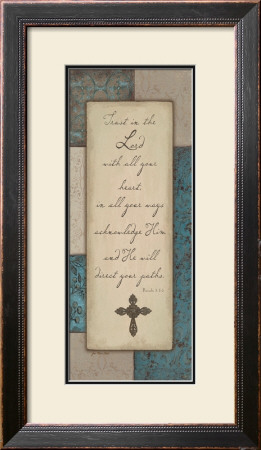 Trust in the
Lord
with all your
heart,
in all your ways
acknowledge Him
and He will
direct your paths.